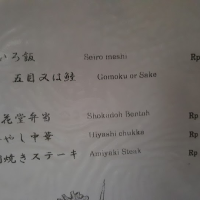 いろ飯 Seiro mesni Rp
五目又は鮭 Gomoku or Sake
花堂弁当 Shokadoh Bentoh Rp
やし中華 Hiyashi chukka Rp
焼きステーキ Amiyaki Steak Rp
Rp